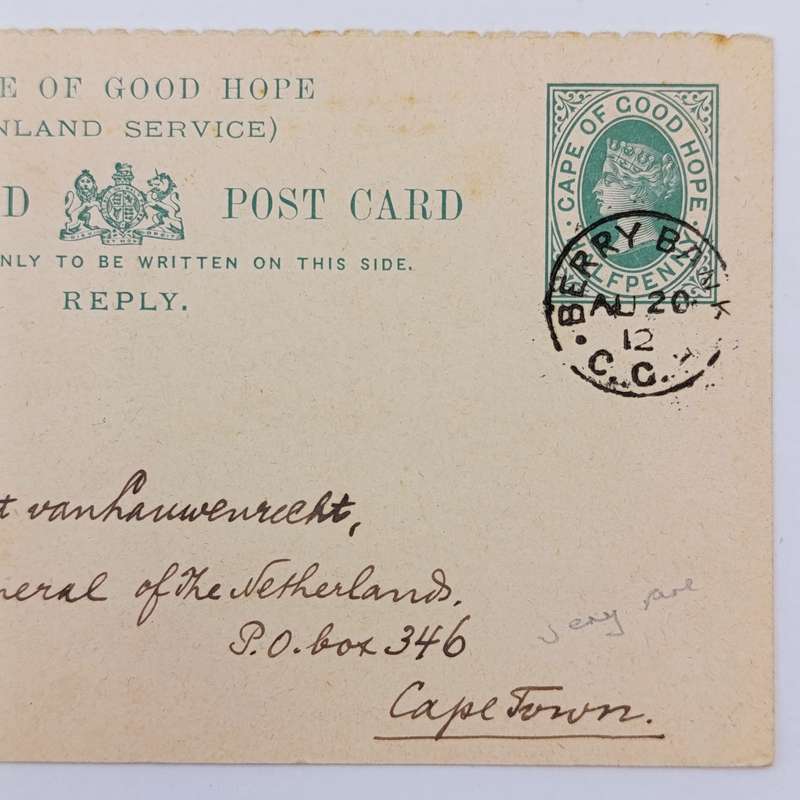 E OF GOOD HOPE
NLAND SERVICE)
D POST CARD
NLY TO BE WRITTEN ON THIS SIDE.
REPLY.
CAPE OF GOOD HOPE
HALFPENNY
BERRY BANK
AU 20
12
C.C.
t vanhauwenrecht,
neral of the Netherlands.
P.O. box 346
Cape Town.
very rare